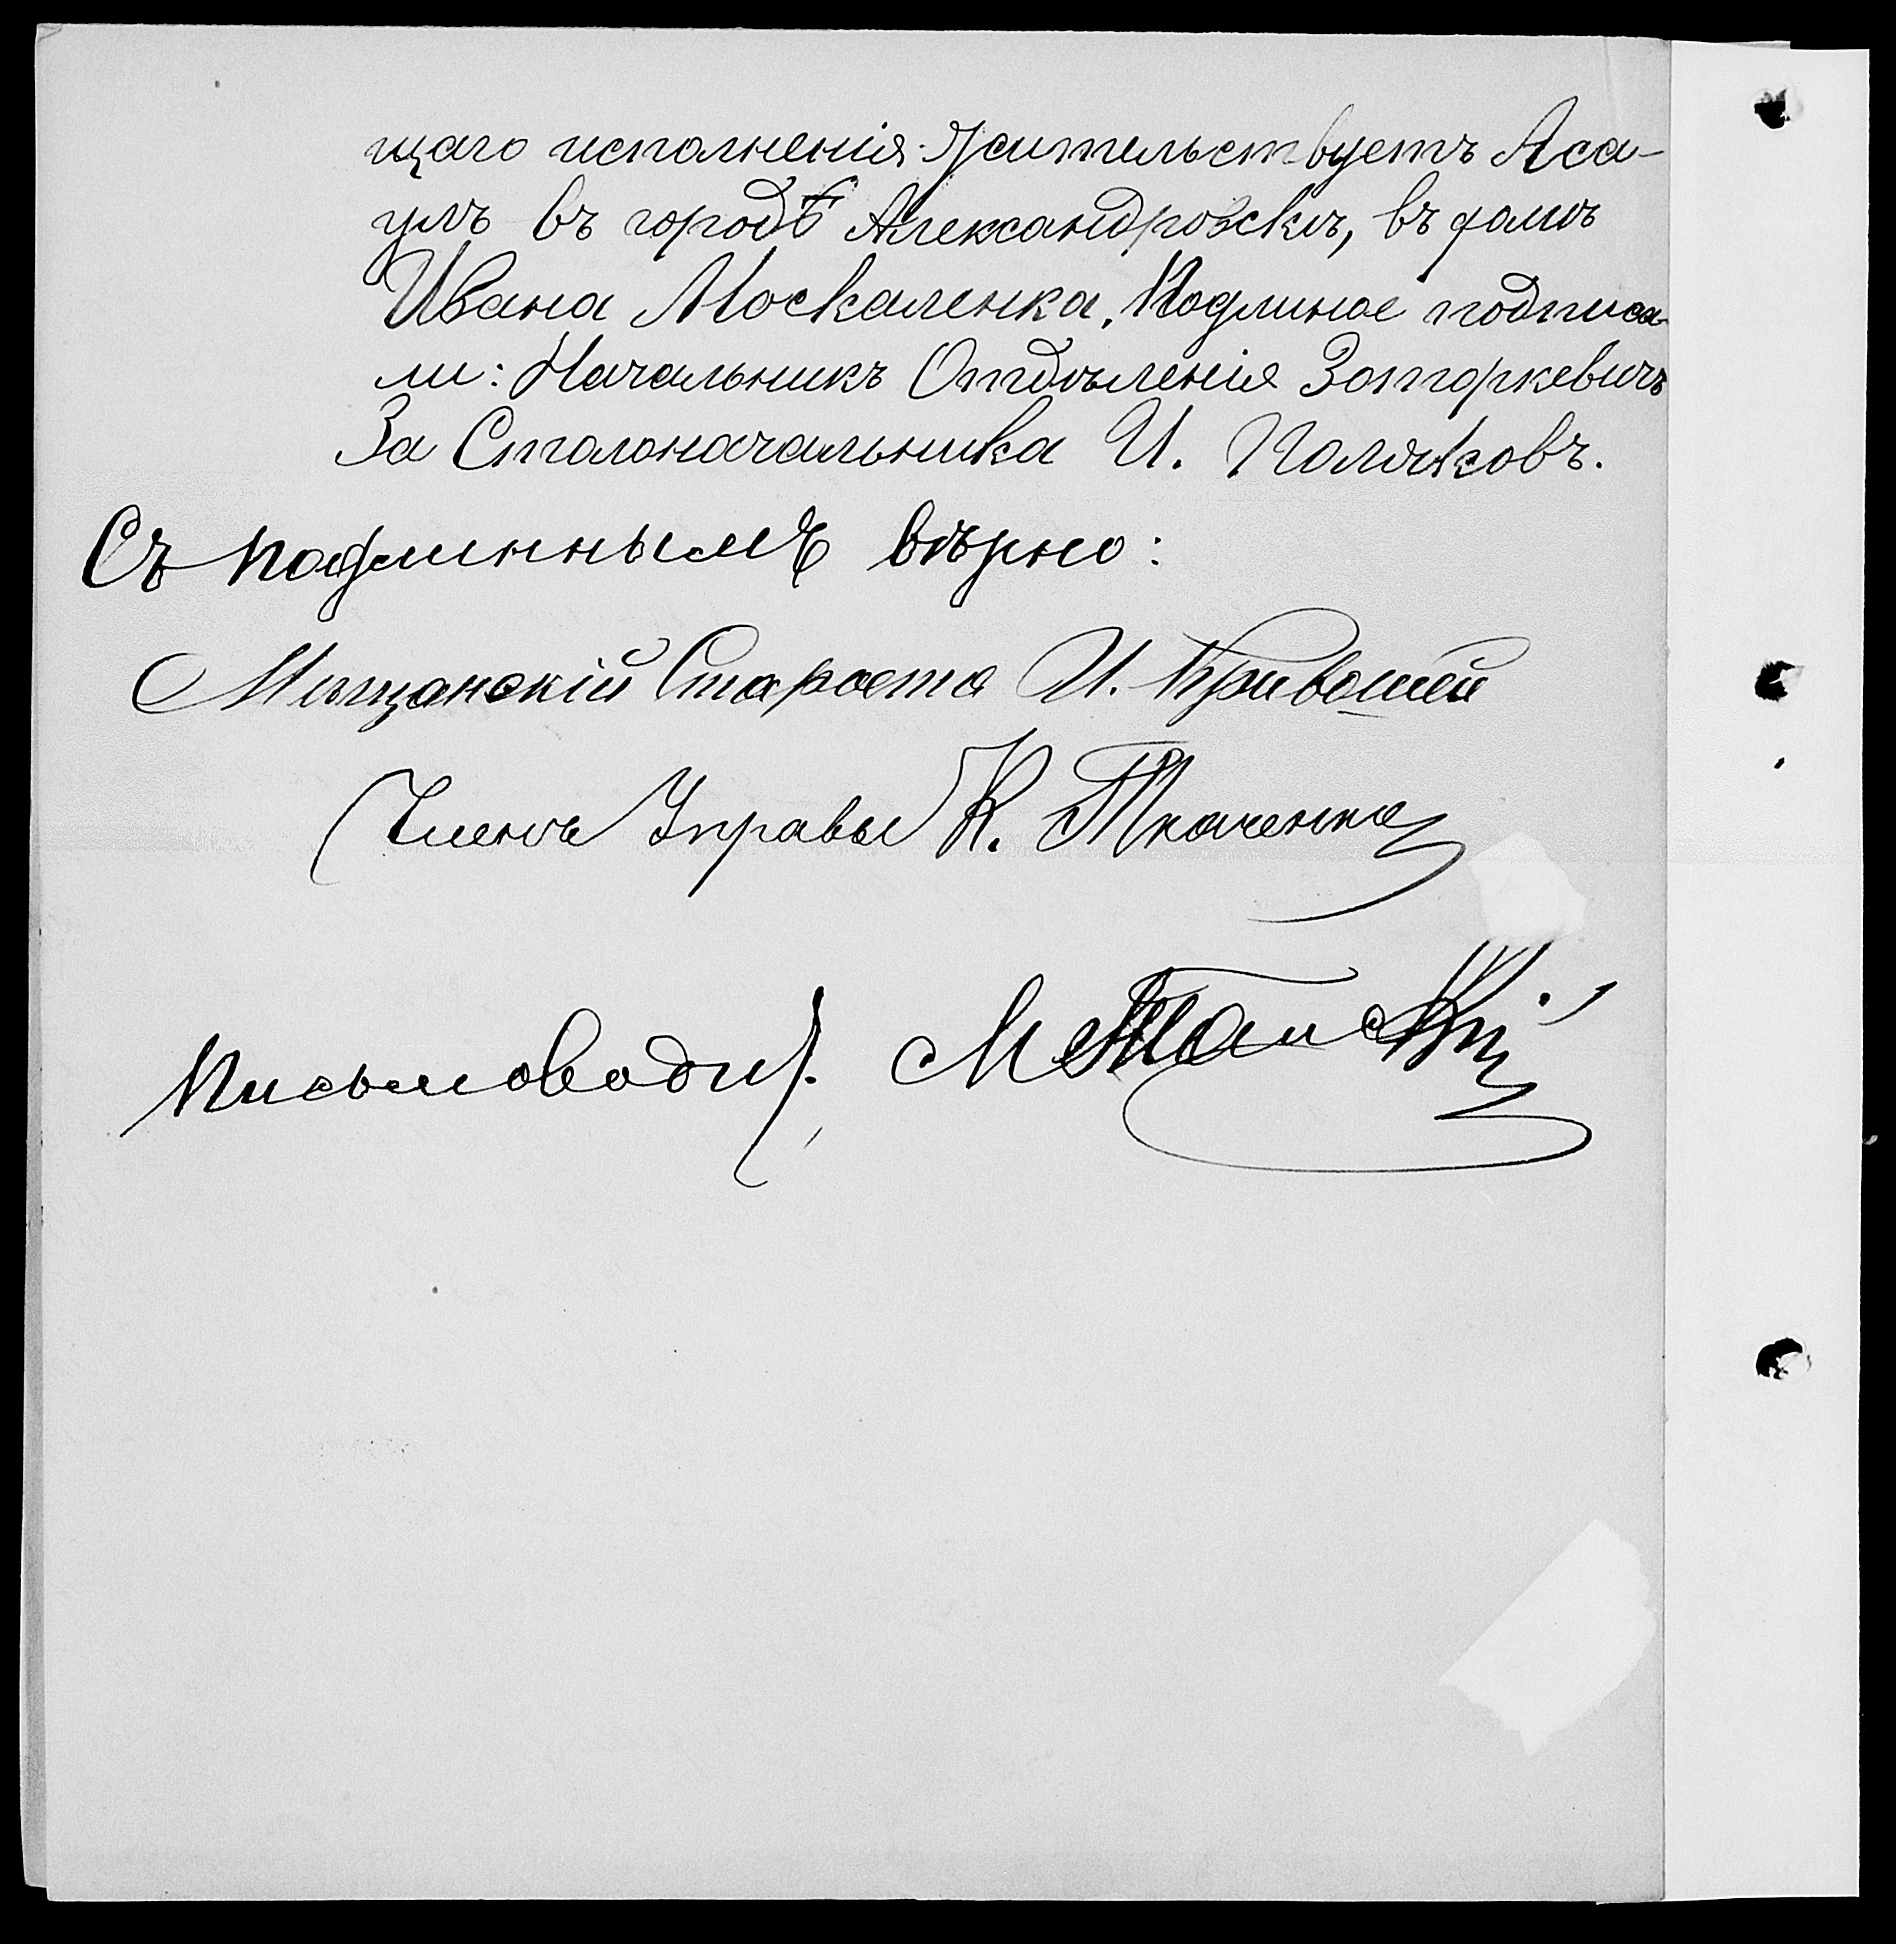 щаго исполненія. Жительствуетъ Аса-
улъ въ городѣ Александровскѣ, въ домѣ
Ивана Москаленка. Подлиное подписа-
ли: Начальникъ Отдѣленія Зотторкевичъ
За Столоначальника И. Поляковъ.
Съ подлиннымъ вѣрно:
Мѣщанскій Староста И. Кривошей
Членъ Управы К. Ткаченко
Письмоводит.